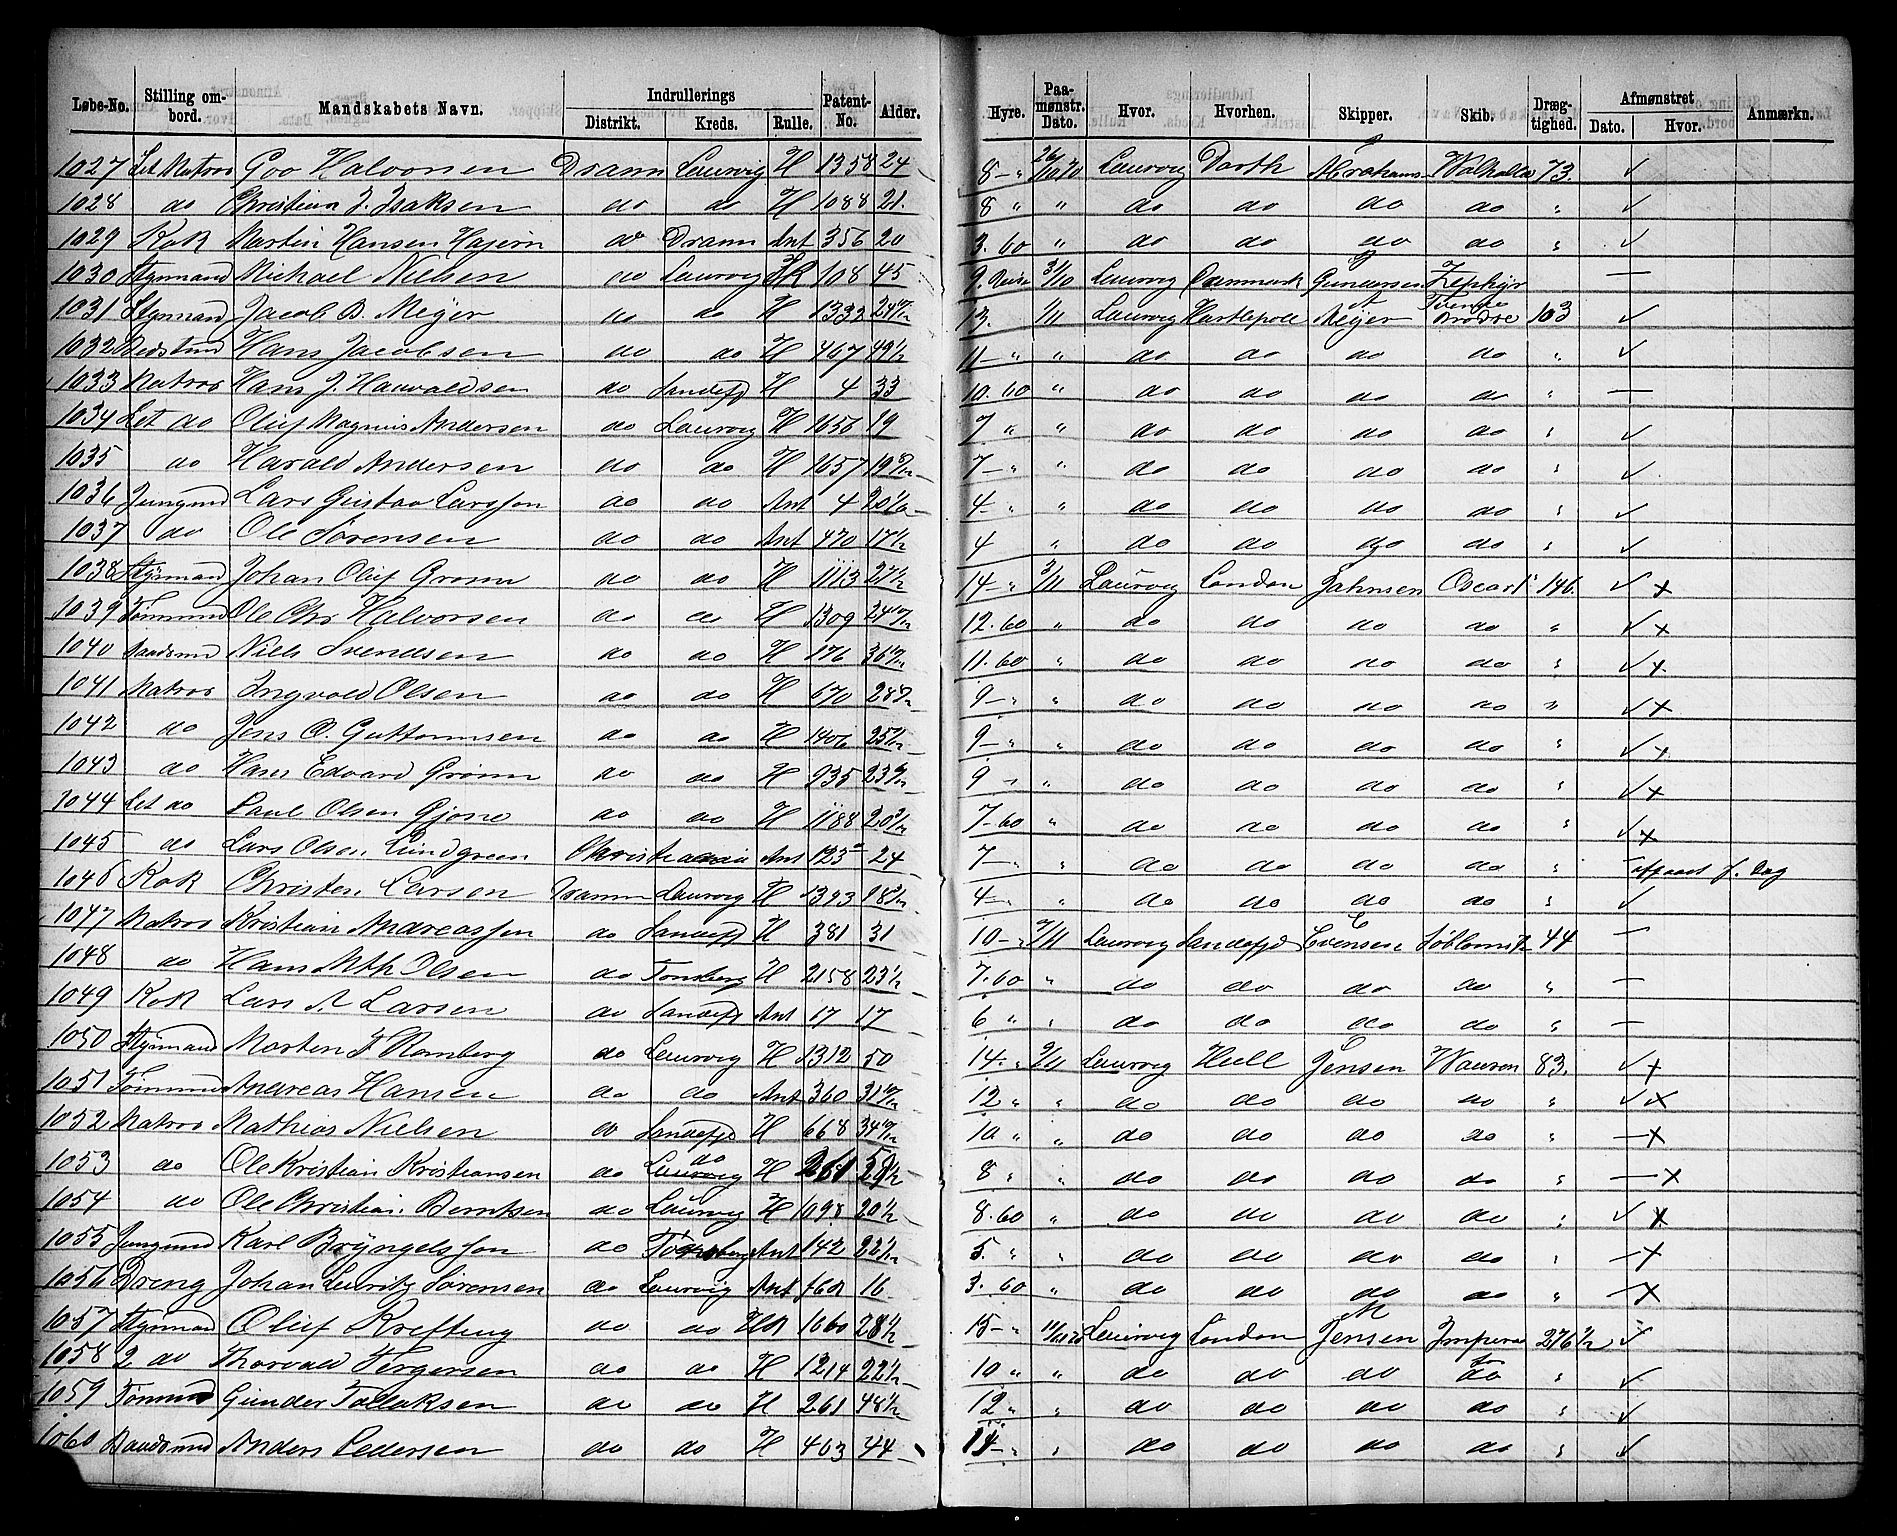 Løbe-No. Stilling ombord. Mandskabets Navn. Indrullerings Distrikt. Kreds. Rulle. Patent-No. Alder. Hyre. Paamønstr. Dato. Hvor. Hvorhen. Skipper. Skib. Drægtighed. Afmønstret Dato. Hvor. Anmærkn.
1027 Let Matros Halvorsen Dramn Laurvig H 1358 24 8 - " 26/10 70 Laurvig Abrahams Walhalla 73. ✓
1028 do Christian J. Isaksen do do H 1088 21. 8 " " do do do do " ✓
1029 Kok Martin Hansen do Dramn Ant 356 20 3. 60 " do do do do " ✓
1030 Styrmand Michael Nielsen do Laurvig 108 45 9. Reise 31/10 Laurvig Danmark Gundersen Zephyr —
1031 Styrmand Jacob B. Meyer do do H 1332 13. 1/11 Laurvig Hartlepoll A Meyer Tvende Brødre 103 ✓
1032 Bedstmd Hans Jacobsen do do H 467 49 1/2 11 - " " do do do do " ✓
1033 Matros Hans J. Hauvaldsen do Sandefj H 4 33 10. 60 " do do do do " —
1034 Let do Oluf Magnus Andersen do Laurvig H 1656 19 7 " " do do do do " ✓
1035 do Harald Andersen do do H 1657 7 - " " do do do do " ✓
1036 Jungmd Lars Gustav Larsson do do Ant 4 4 - " do do do do " ✓
1037 do Ole Sørensen do do Ant 470 17 1/2 4 " do do do do " ✓
1038 Styrmand Johan Oluf Grønn do do H 1113 14 - " 3/11 Laurvig London Jahnsen Oscar 146. ✓ x
1039 Tømmmd Ole Chr Halvorsen do do H 1309 12. 60 " do do do do " ✓ x
1040 Baadsmd Niels Svendsen do do H 176 11. 60 " do do do do " ✓ x
1041 Matros Ingvald Olsen do do H 670 9 - " " do do do do " ✓ x
1042 do Jens O. Guttormsen do do H 1406 9 - " " do do do do " ✓ x
1043 do Hans Edvard Grønn do do H 935 9 - " do do do do " ✓ x
1044 Let do Paul Olsen Gjone do do H 1188 7 - 60 " do do do do " ✓ x
1045 do Lars Olsen Lindgreen Christiania Ant 123 24 7 - " " do do do do " — afgaaet f. Dag
1046 Kok Christen Larsen Dramn Laurvig H 1393 4 - " do do do do " ✓
1047 Matros Kristian Andreassen do Sandefj H 381 31 10 - " 7/11 Laurvig Sandefjd E Evensen 44 —
1048 do Hans Mth Olsen do Tønsberg H 2158 23 1/2 7. 60 " do do do do " —
1049 Kok Lars A Larsen do Sandefj Ant 17 17 6 " " do do do do " —
1050 Styrmand Morten F Ramberg do Laurvig H 1312 50 14. " 9/11 Laurvig Hull Jensen 83. ✓ x
1051 Tømmmd Andreas Hansen do do Ant 360 12 " " do do do do " ✓ x
1052 Matros Mathias Nielsen do Sandefjd H 668 10 " " do do do do " — x
1053 do Ole Kristian Kristiansen do do H 261 8 " " do do do do " — x
1054 do Ole Christian Berntsen do Laurvig H 1098 20 1/2 8. 60 " do do do do " ✓ x
1055 Jungmd Karl Bryngelsson do Tønsberg Ant 142 22 1/2 5. " " do do do do " — x
1056 Dreng Johan Lauritz Sørensen do Laurvig Ant 16 3. 60 " do do do do " — x
1057 Styrmand Oluf Krefting do do HR 1060 28 1/2 15 - " 11/11 70 Laurvig London M Jensen Imperator 276 1/2 ✓
1058 2 do Thorvald Tergersen do do H 1214 22 1/2 10 " " do do do do " ✓
1059 Tømmmd Gunder Tollaksen do do H 261 48 1/2 12 " " do do do do " ✓
1060 Baadsmd Anders Pedersen do do H 403 44 14 - " " do do do do " ✓